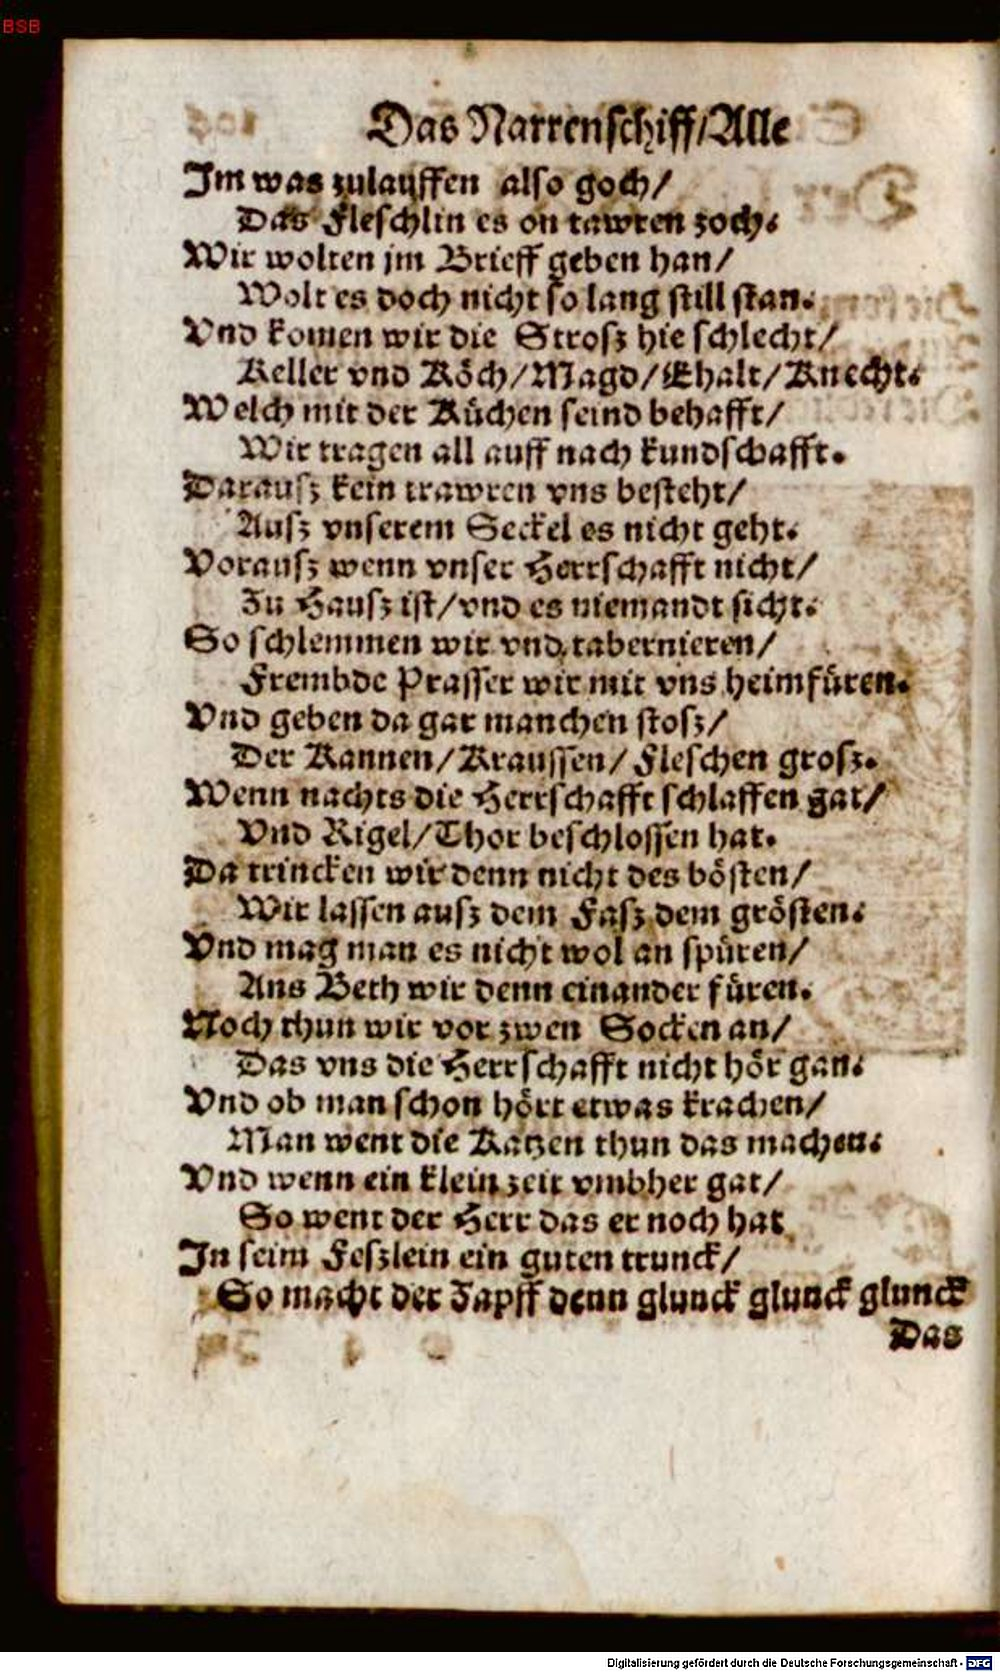 BSB
Das Narrenschiff/Alle
Im was zulauffen also goch/
Das Fleschlin es on tawren zoch.
Wir wolten jm Brieff geben han/
Wolt es doch nicht so lang still stan.
Vnd komen wir die Strosz hie schlecht/
Keller vnd Köch/Magd/Ehalt/Knecht.
Welch mit der Küchen seind behafft/
Wir tragen all auff nach kundschafft.
Darausz kein trawren vns besteht/
Ausz vnserem Seckel es nicht geht.
Vorausz wenn vnser Herrschafft nicht/
Zu Hausz ist/vnd es niemandt sicht.
So schlemmen wir vnd tabernieren/
Frembde Prasser wir mit vns heimfüren.
Vnd geben da gar manchen stosz/
Der Kannen/Kraussen/Fleschen grosz.
Wenn nachts die Herrschafft schlaffen gat/
Vnd Rigel/Thor beschlossen hat.
Da trincken wir denn nicht des bösten/
Wir lassen ausz dem Fasz dem grösten.
Vnd mag man es nicht wol an spüren/
Ans Beth wir denn einander füren.
Noch thun wir vor zwen Socken an/
Das vns die Herrschafft nicht hör gan.
Vnd ob man schon hört etwas krachen/
Man went die Katzen thun das machen.
Vnd wenn ein klein zeit vmbher gat/
So went der Herr das er noch hat
In seim Feszlein ein guten trunck/
So macht der Zapff denn glunck glunck glunck
Das
Digitalisierung gefördert durch die Deutsche Forschungsgemeinschaft - DFG